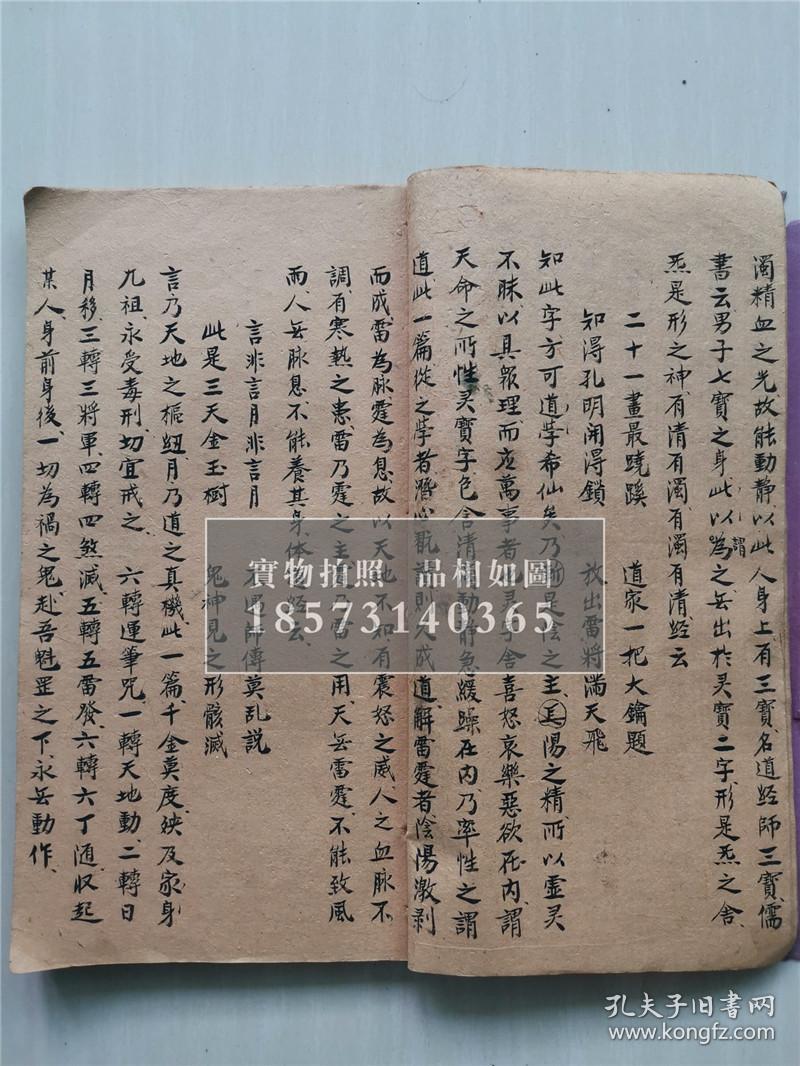 濁精血之光故能動静以此人身上有三寳名道经師三寳儒
書云男子七寳之身此以為之無出於灵寳二字形是炁之舍
謂
炁是形之神有清有濁有濁有清经云
二十一畫最蹺蹊 道家一把大鑰題
知得孔明開得鎖 放出雷將满天飛
知此字方可道學希仙矣乃是陰之主陽之精所以虚灵
不昧以具衆理而应萬事者也灵子舍喜怒哀樂惡欲在内謂
天命之所性灵寳字包含清濁動静急緩躁在内乃率性之謂
道此一篇從之學者潛心則成道解雷霆者陰陽激剥
而成雷為脉霆為息故以天地不知有震怒之威人之血脉不
調有寒熱之患雷乃霆之主霆乃雷之用天無雷霆不能致風
雨人無脉息不能養其身体经云
言非言月非言月 不遇師傳莫乱説
此是三天金玉樹 鬼神見之形骸滅
言乃天地之樞紐月乃道之真機此一篇千金莫度殃及家身
九祖永受毒刑切宜戒之 六轉運筆咒一轉天地動二轉日
月移三轉三將軍四轉四煞滅五轉五雷發六轉六丁随収起
某人身前身後一切為禍之鬼赴吾魁罡之下永無動作
實物拍照 品相如圖
18573140365
孔夫子旧書网
www.kongfz.com